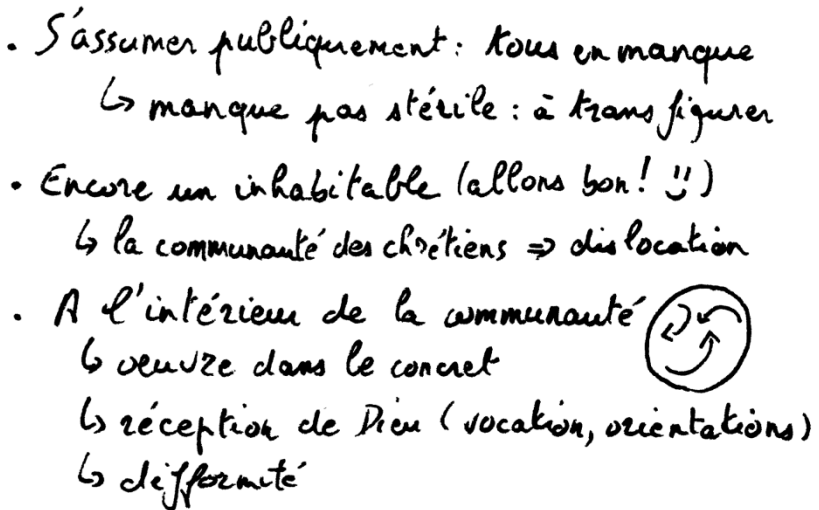 . S'assumer publiquement : tous en manque
↳ manque pas stérile : à transfigurer
• Encore un inhabitable (allons bon ! ü)
↳ la communauté des chrétiens => dislocation
. A l'intérieur de la communauté
↳ oeuvre dans le concret
↳ réception de Dieu (vocation, orientations)
↳ difformité